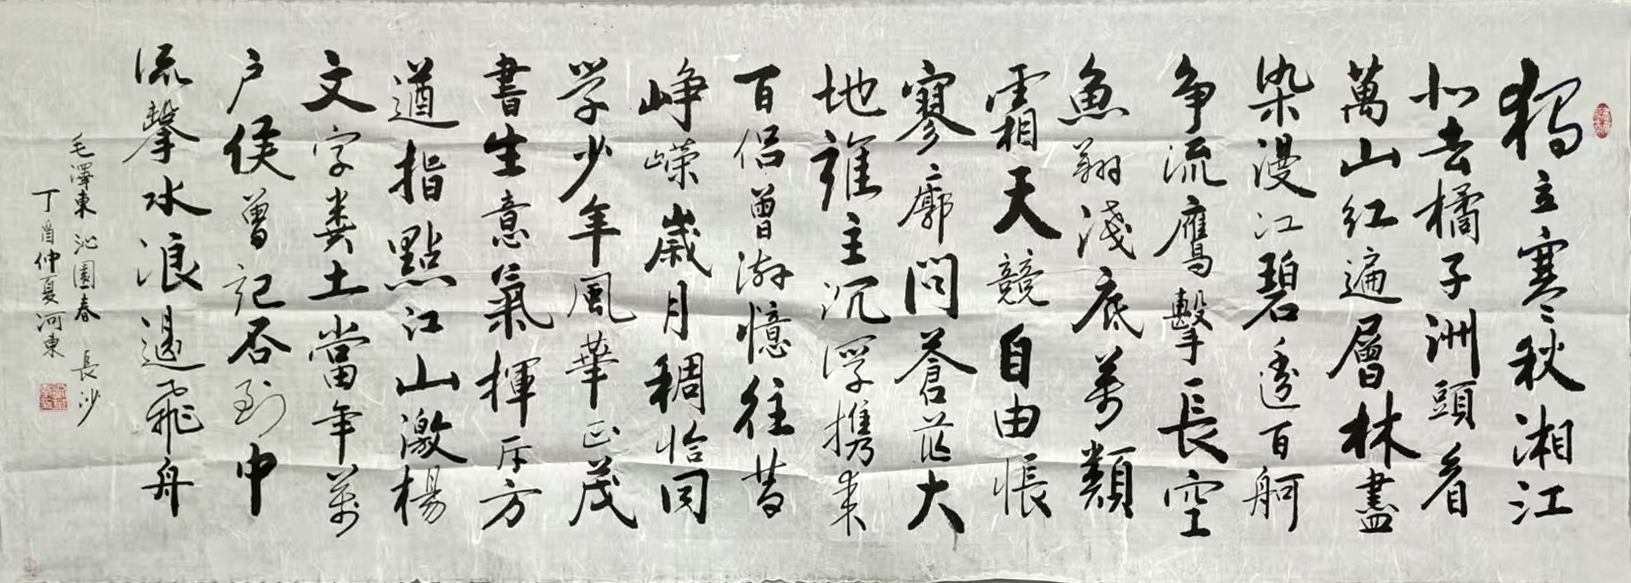 獨立寒秋湘江
北去橘子洲頭看
萬山红遍層林盡
染漫江碧透百舸
争流鹰擊長空
魚翔淺底萬類
霜天競自由悵
寥廓問蒼茫大
地誰主沉浮携来
百侣曾游憶往昔
峥嵘歲月稠恰同
学少年風華正茂
書生意氣揮斥方
遒指點江山激楊
文字粪土當年萬
户侯曾记否到中
流擊水浪遏飛舟
毛澤東 沁園春 長沙
丁酉仲夏河東